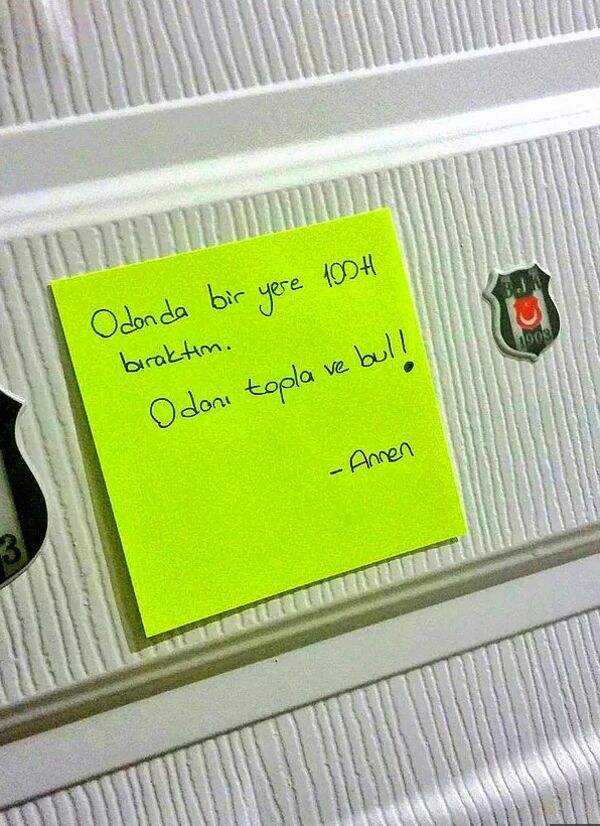 Odanda bir yere 100tl
bıraktım.
Odanı topla ve bul!
- Annen
BJK
1903
3